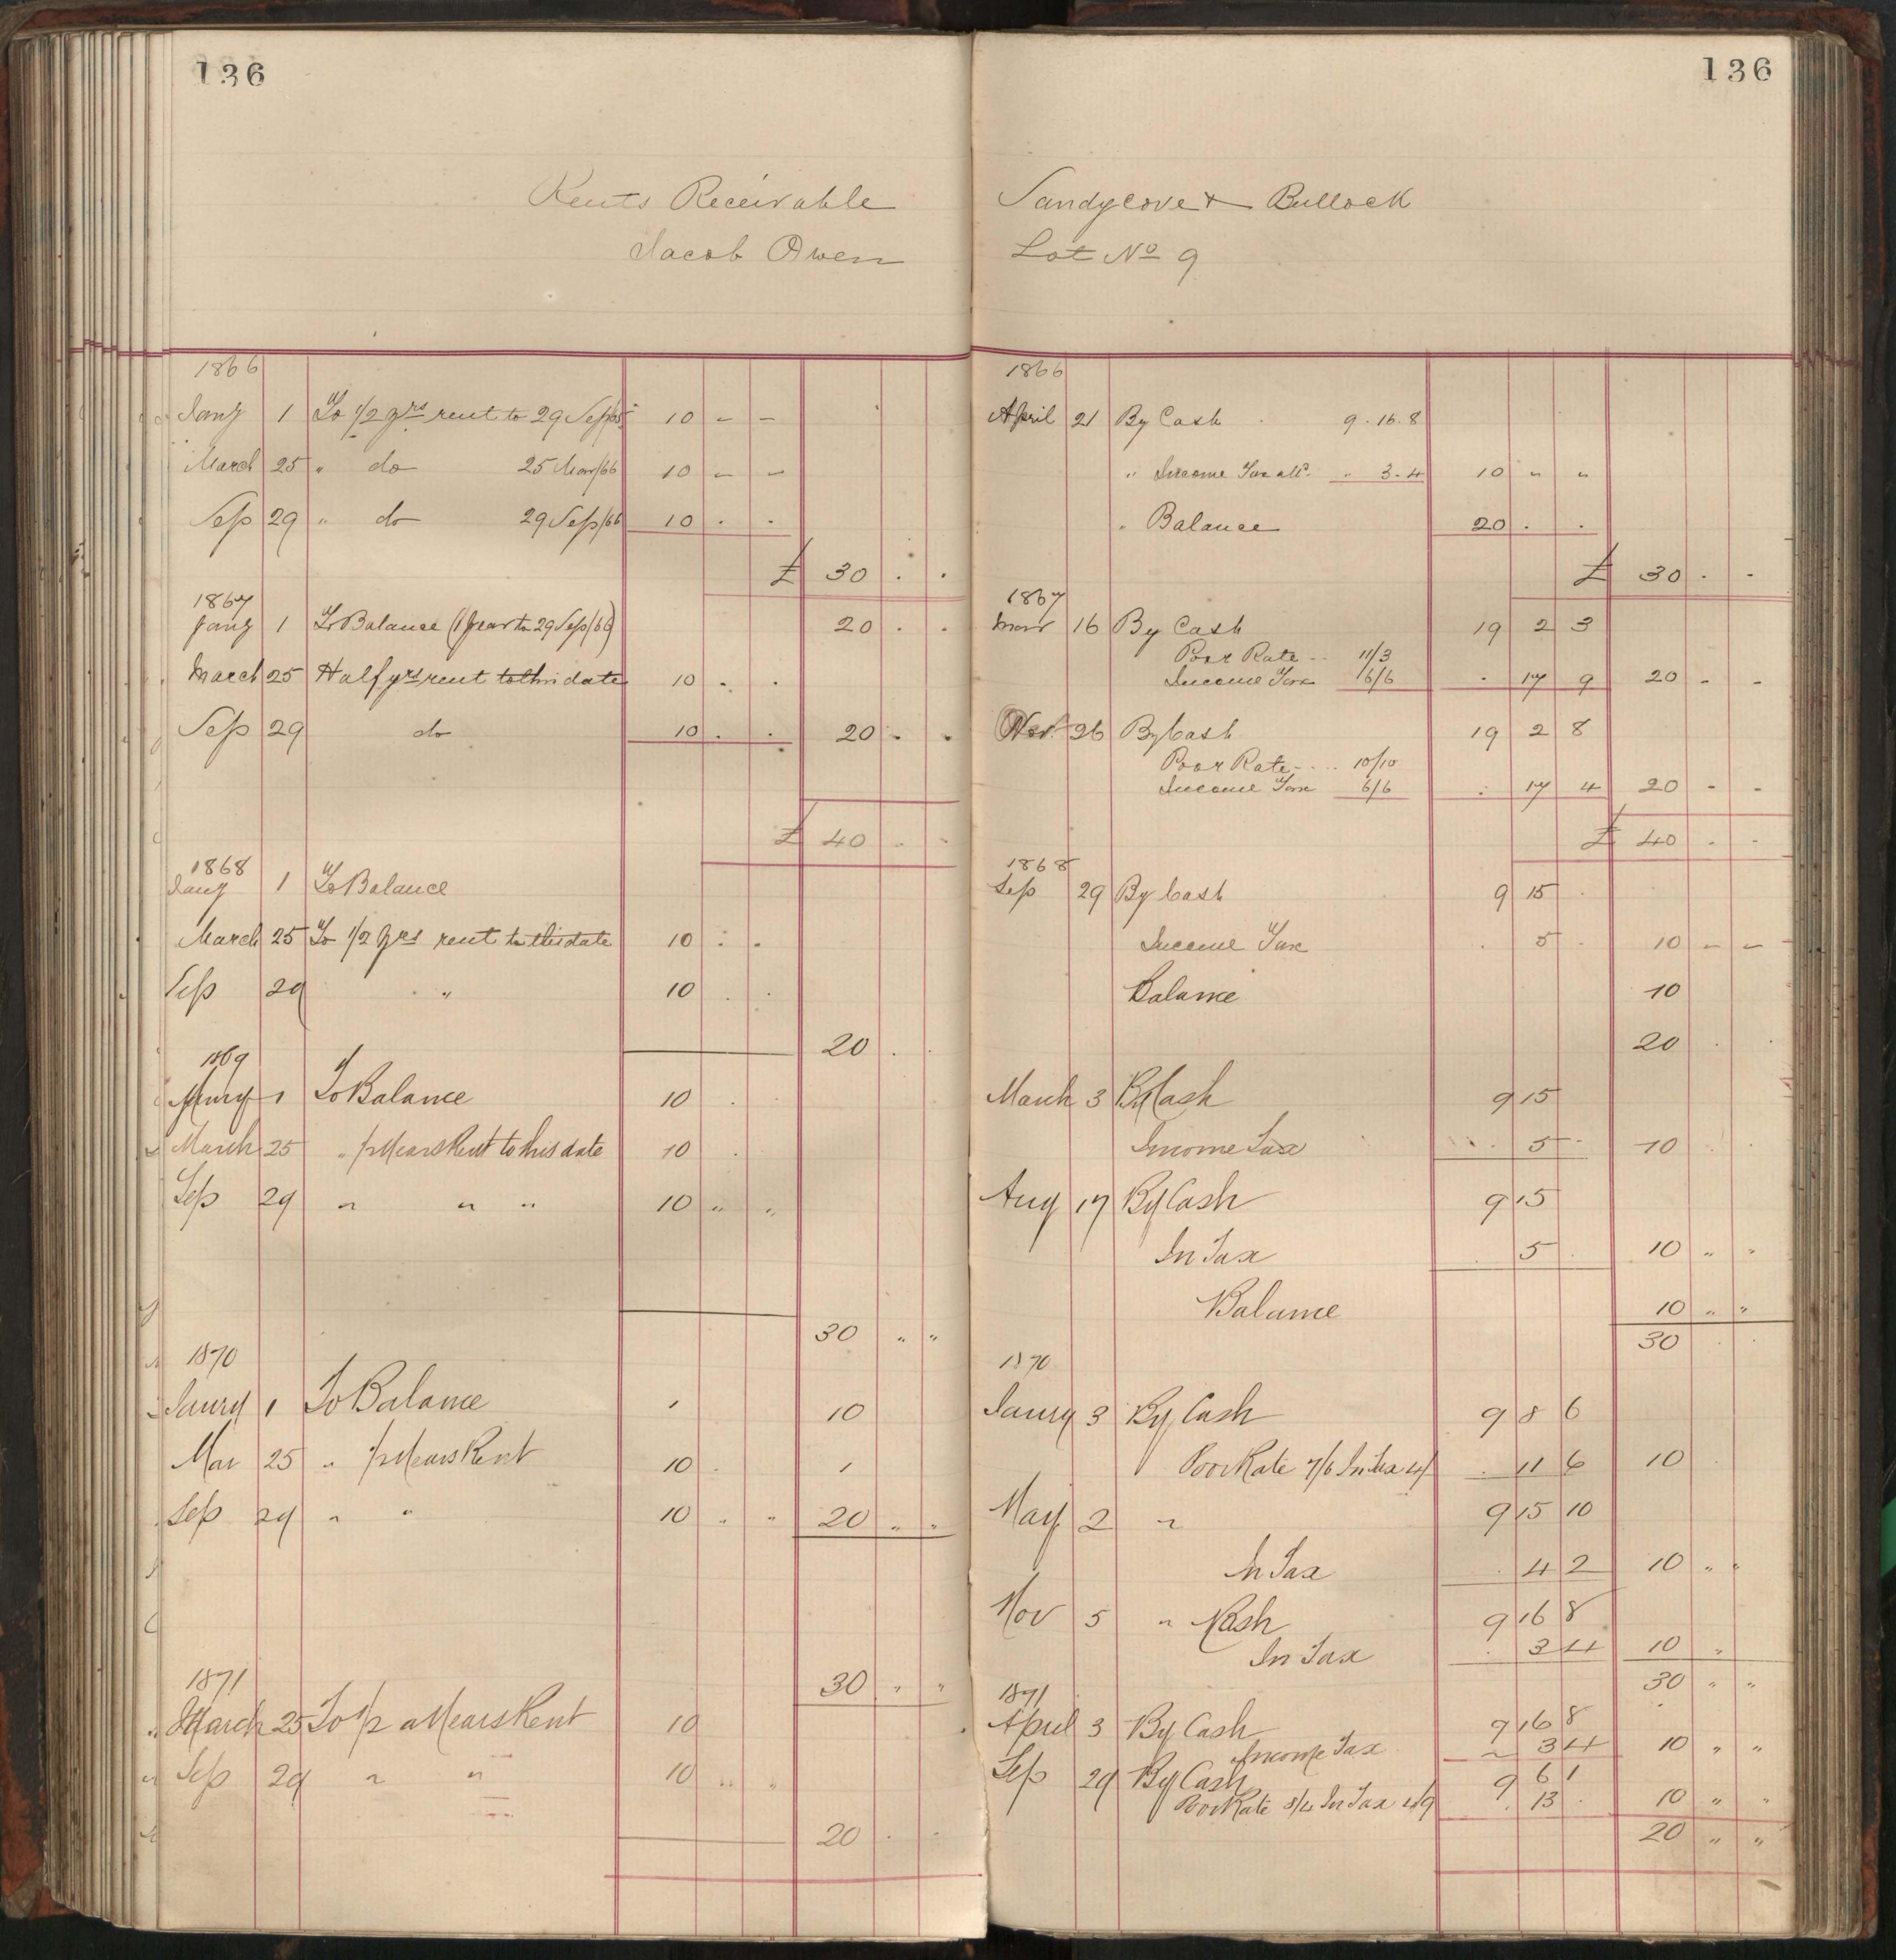 136
Rents Receivable
Jacob Owen
1866
Jany 1 To 1/2 yrs rent to 29 Sep/65 10 - -
March 25 " do 25 Mar/66 10 - -
Sep 29 " do 29 Sep/66 10 . .
£ 30 . .
1867
Jany 1 To Balance (1 year to 29 Sep/66) 20 . .
March 25 Half yrs rent to this date 10 . .
Sep 29 do 10 . . 20 . .
£ 40 . .
1868
Jany 1 To Balance
March 25 To 1/2 yrs rent to this date 10 . .
Sep 29 " 10 . .
20 . .
1869
Janry 1 To Balance 10 . .
March 25 " 1/2 Years Rent to this date 10 .
Sep 29 " " " 10 " "
30 " "
1870
Janry 1 To Balance 10
Mar 25 " 1/2 Years Rent 10 .
Sep 29 " " 10 " " 20 " "
30 " "
1871
March 25 To 1/2 a Years Rent 10
Sep 29 " " 10 " "
20 . .
136
Sandycove & Bullock
Lot No 9
1866
April 21 By Cash . 9 . 16 . 8
" Income Tax all. " 3 - 4 10 " "
" Balance 20 . .
£ 30 . .
1867
Mar 16 By Cash 19 2 3
Poor Rate .. 11/3
Income Tax 6/6 . 17 9 20 - -
Nov. 26 By Cash 19 2 8
Poor Rate .... 10/10
Income Tax 6/6 . 17 4 20 - -
£ 40 . .
1868
Sep 29 By Cash 9 15 .
Income Tax . 5 . 10 - -
Balance 10
20 . .
March 3 By Cash 9 15
Income Tax . 5 . 10 .
Aug 17 By Cash 9 15
In Tax . 5 . 10 " "
Balance 10 " "
30 . .
1870
Janry 3 By Cash 9 8 6
Poor Rate 7/6 In Tax 4/ . 11 6 10 .
May 2 " 9 15 10
In Tax . 4 2 10 " "
Nov 5 " Cash 9 16 8
In Tax . 3 4 10 "
30 " "
1871
April 3 By Cash 9 16 8
Income Tax " 3 4 10 " "
Sep 29 By Cash 9 6 1
Poor Rate 8/4 In Tax 4/9 . 13 . 10 " "
20 " "